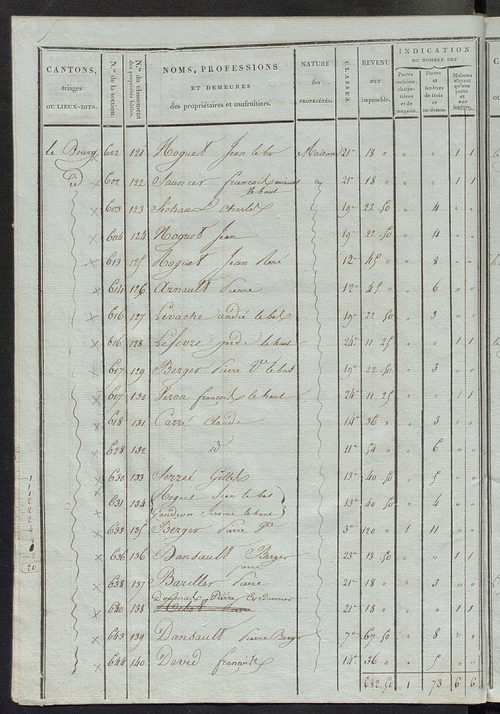 CANTONS, triages OU LIEUX-DITS. N.os de la section. N.os du classement des propriétés bâties. NOMS, PROFESSIONS ET DEMEURES des propriétaires et usufruitiers. NATURE des PROPRIÉTÉS. CLASSES. REVENU NET imposable. INDICATION DU NOMBRE DES Portes cochères, charretières et de magasin. Portes et fenêtres de trois et au-dessus Maisons n'ayant qu'une porte et une fenêtre.
le Bourg 602 121 Hoquet Jean le bas Maison 21e 18 " " " 1 1
id 602 122 Saunier francois le haut 21e 18 " " " 1 1
603 123 Charles 19e 22 50 " 4
604 124 Hoquet Jean 19e 22 50 " 4
613 125 Hoquet Jean René 12e 45 " " 8
614 126 Arnault Pierre 12e 45 " " 6
616 127 Livache andré le bas 19e 22 50 " 3
616 128 Lefevre le haut 24e 11 25 " " 1 1
617 129 Berger Pierre Ve le bas 19e 22 50 " 3
617 130 Veron françois le haut 24e 11 25 " " 1 1
618 131 Carré 14e 36 " " 3
628 132 id 11e 54 " " 6
630 133 Gilles 13e 40 50 " 5
631 134 Hoquet Jean le bas 13e 40 50 " 4
le haut
633 135 Berger Pierre 3e 120 " 1 11
636 136 Dansault Berger 23e 13 50 " " 1 1
638 137 Bariller Pierre 21e 18 " " 3
640 138 Pierre Cordonnier 21e 18 " " " 1 1
643 139 Dansault Pierre Berger 7e 67 50 " 8
644 140 David françois 14e 36 " " 5
682 50 1 73 6 6